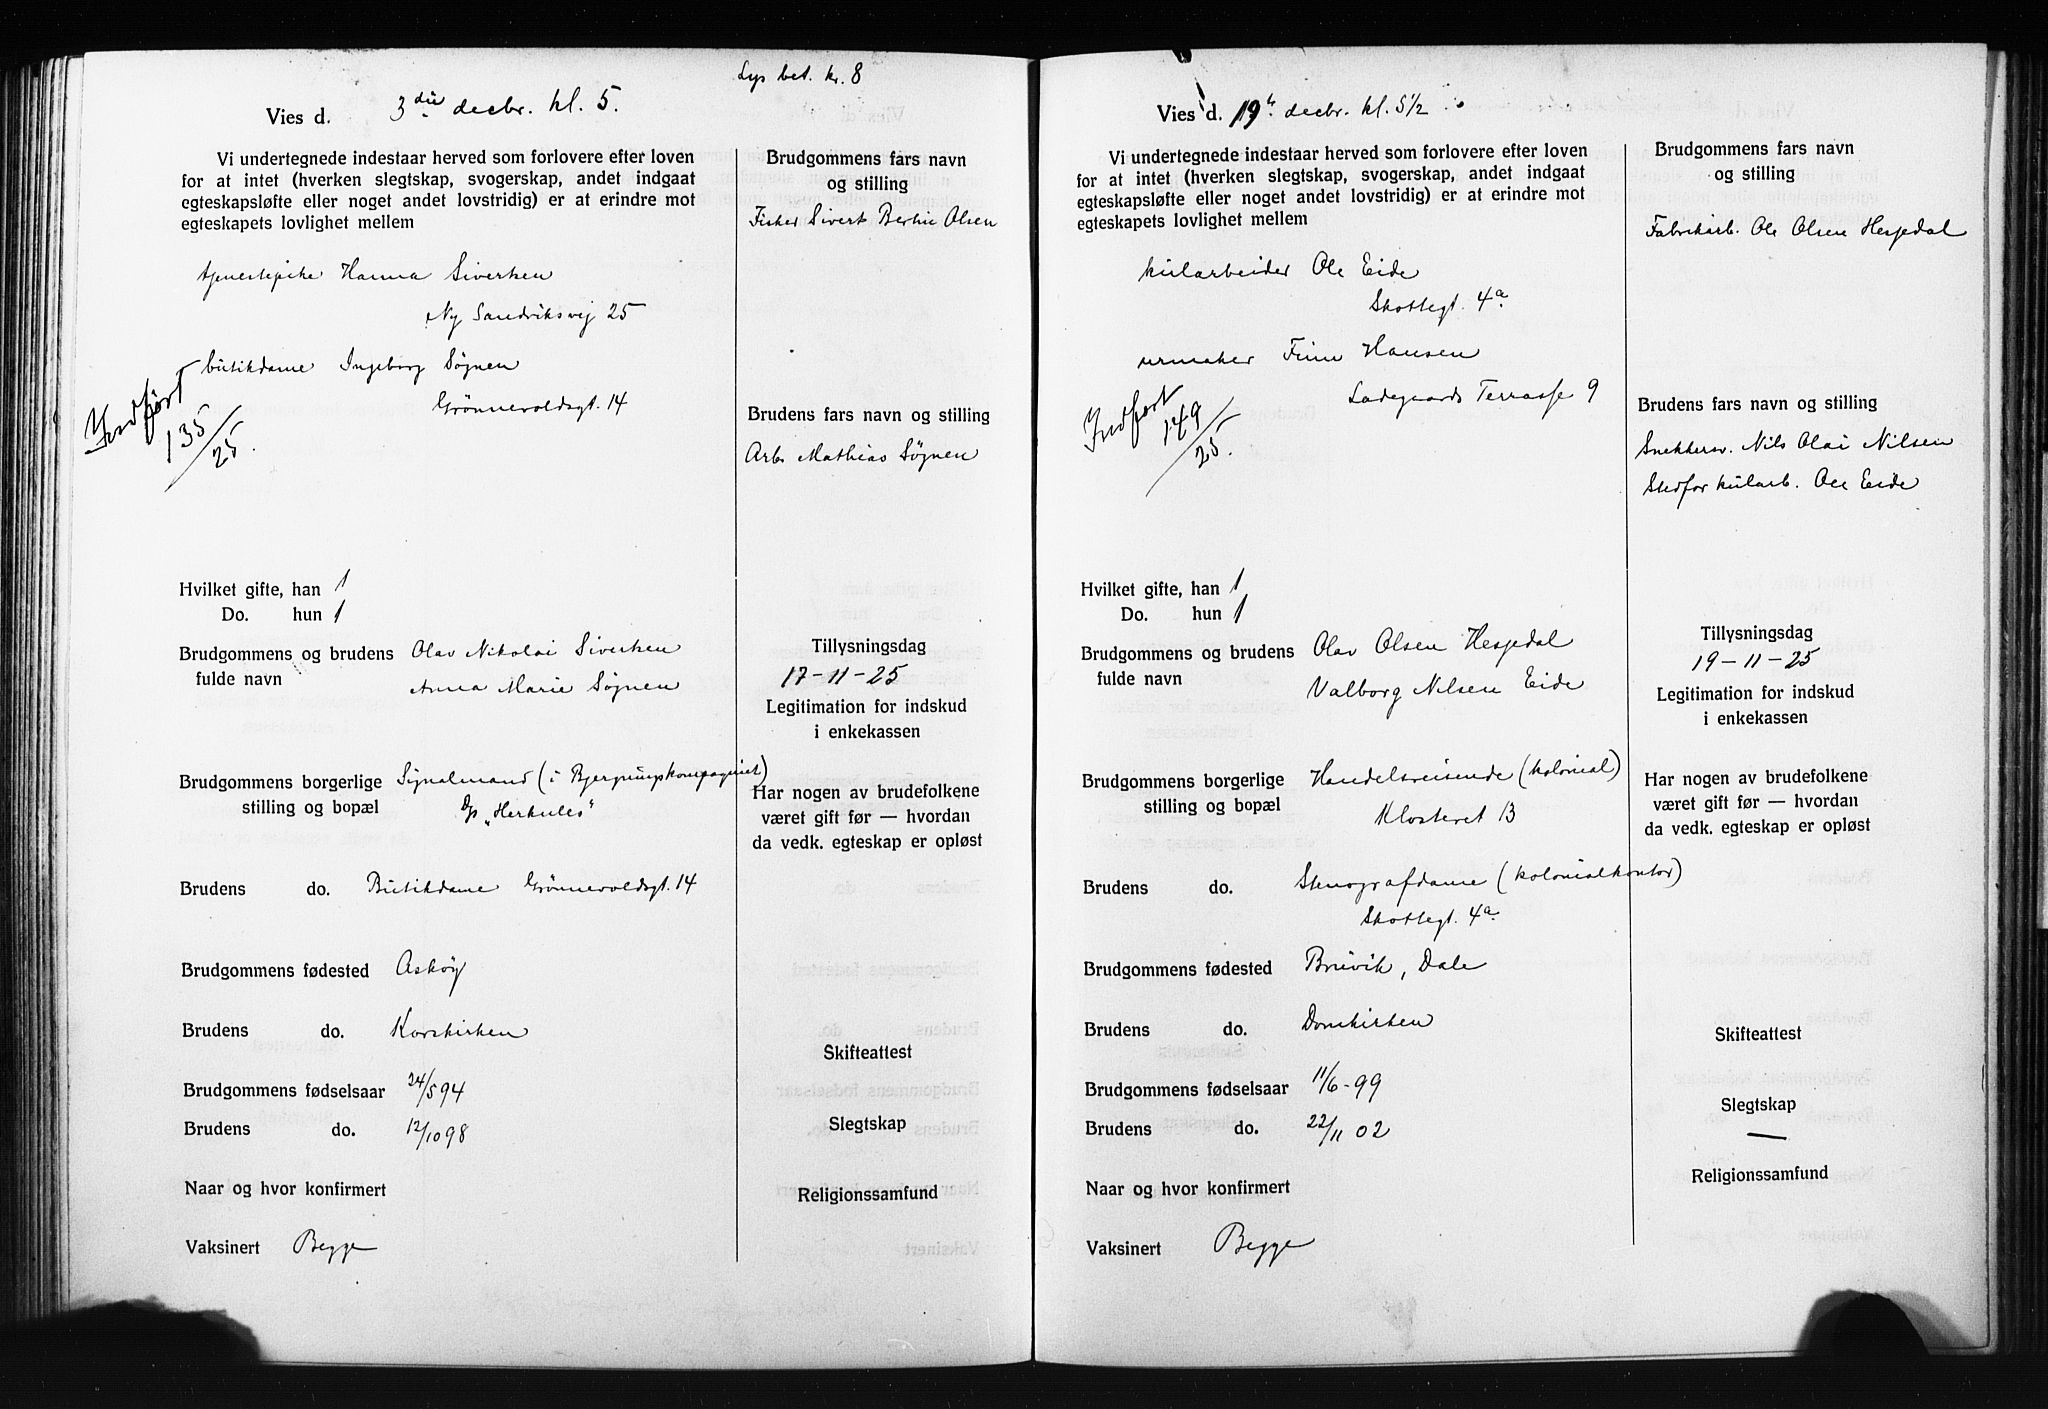 Lys bet. kr. 8
Vies d. 3die decbr. kl. 5.
Vi undertegnede indestaar herved som forlovere efter loven
for at intet (hverken slegtskap, svogerskap, andet indgaat
egteskapsløfte eller noget andet lovstridig) er at erindre mot
egteskapets lovlighet mellem
tjenestepike Hanna Sivertsen
Ny Sandviksvej 25
butikdame Ingeborg Søgnen
Grønnevoldsgt. 14
Indført
135/25.
Hvilket gifte, han 1
Do. hun 1
Brudgommens og brudens Olav Nikolai Sivertsen
fulde navn Anna Marie Søgnen
Brudgommens borgerlige Signalmand (i Bjergningskompagniet)
stilling og bopæl D/s „Herkules"
Brudens do. Butikdame Grønnevoldsgt. 14
Brudgommens fødested Askøy
Brudens do. Korskirken
Brudgommens fødselsaar 24/5 94
Brudens do. 12/10 98
Naar og hvor konfirmert
Vaksinert Begge
Brudgommens fars navn
og stilling
Fisker Sivert Bertin Olsen
Brudens fars navn og stilling
Arb. Mathias Søgnen
Tillysningsdag
17-11-25
Legitimation for indskud
i enkekassen
Har nogen av brudefolkene
været gift før — hvordan
da vedk. egteskap er opløst
Skifteattest
Slegtskap
Religionssamfund
Vies d. 19de decbr. kl. 5 1/2
Vi undertegnede indestaar herved som forlovere efter loven
for at intet (hverken slegtskap, svogerskap, andet indgaat
egteskapsløfte eller noget andet lovstridig) er at erindre mot
egteskapets lovlighet mellem
kularbeider Ole Eide
Skottegt. 4a
urmaker Finn Hansen
Ladegaards Terrasse 9
Indført
149/25.
Hvilket gifte, han 1
Do. hun 1
Brudgommens og brudens Olav Olsen Hesjedal
fulde navn Valborg Nilsen Eide
Brudgommens borgerlige Handelsreisende (kolonial)
stilling og bopæl Klosteret 13
Brudens do. Stenografdame (kolonialkontor)
Skottegt. 4a
Brudgommens fødested Bruvik, Dale
Brudens do. Domkirken
Brudgommens fødselsaar 11/6-99
Brudens do. 22/11 02
Naar og hvor konfirmert
Vaksinert Begge
Brudgommens fars navn
og stilling
Fabrikarb. Ole Olsen Hesjedal
Brudens fars navn og stilling
Snekkersv. Nils Olai Nilsen
Stedfar kularb. Ole Eide
Tillysningsdag
19-11-25
Legitimation for indskud
i enkekassen
Har nogen av brudefolkene
været gift før — hvordan
da vedk. egteskap er opløst
Skifteattest
Slegtskap
—
Religionssamfund